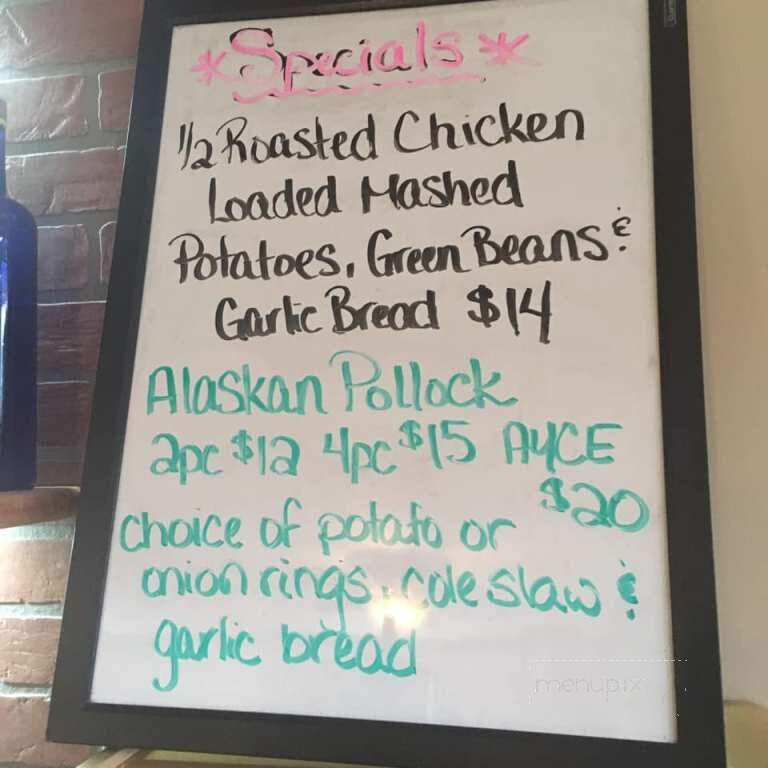 *Specials*
1/2 Roasted Chicken
Loaded Mashed
Potatoes, Green Beans &
Garlic Bread $14
Alaskan Pollock
2pc $12 4pc $15 AYCE
$20
choice of potato or
onion rings, cole slaw &
garlic bread
menupix